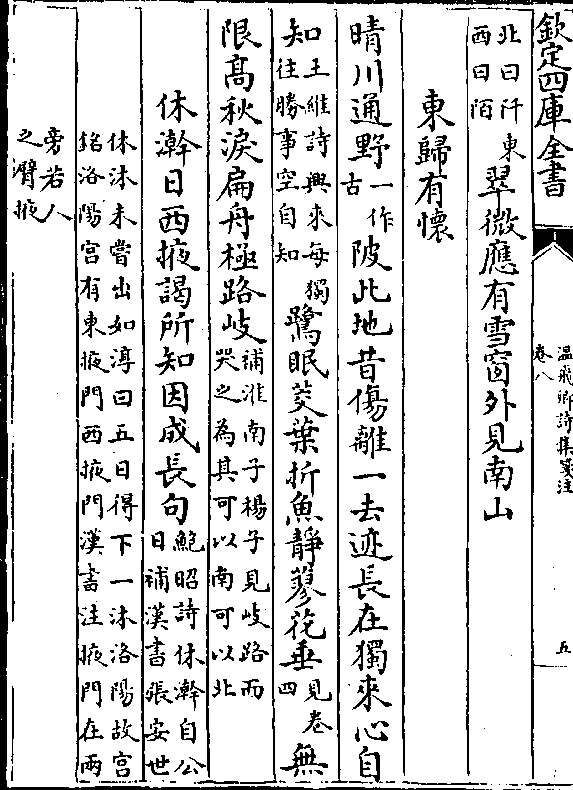 欽定四庫全書
温飛卿詩集箋注
卷八
五
北曰阡東
西曰陌
翠微應有雪窗外見南山
東歸有懷
晴川通野
一作
古
陂此地昔傷離一去迹長在獨來心自
知
王維詩興來每獨
往勝事空自知
鷺眠茭葉折魚靜蓼花垂
見卷
四
無
限高秋淚扁舟極路岐
補淮南子楊子見岐路而
哭之為其可以南可以北
休澣日西掖謁所知因成長句
鮑昭詩休澣自公
日補漢書張安世
休沐未嘗出如淳曰五日得下一沐洛陽故宫
銘洛陽宫有東掖門西掖門漢書注掖門在兩
旁若人
之臂掖